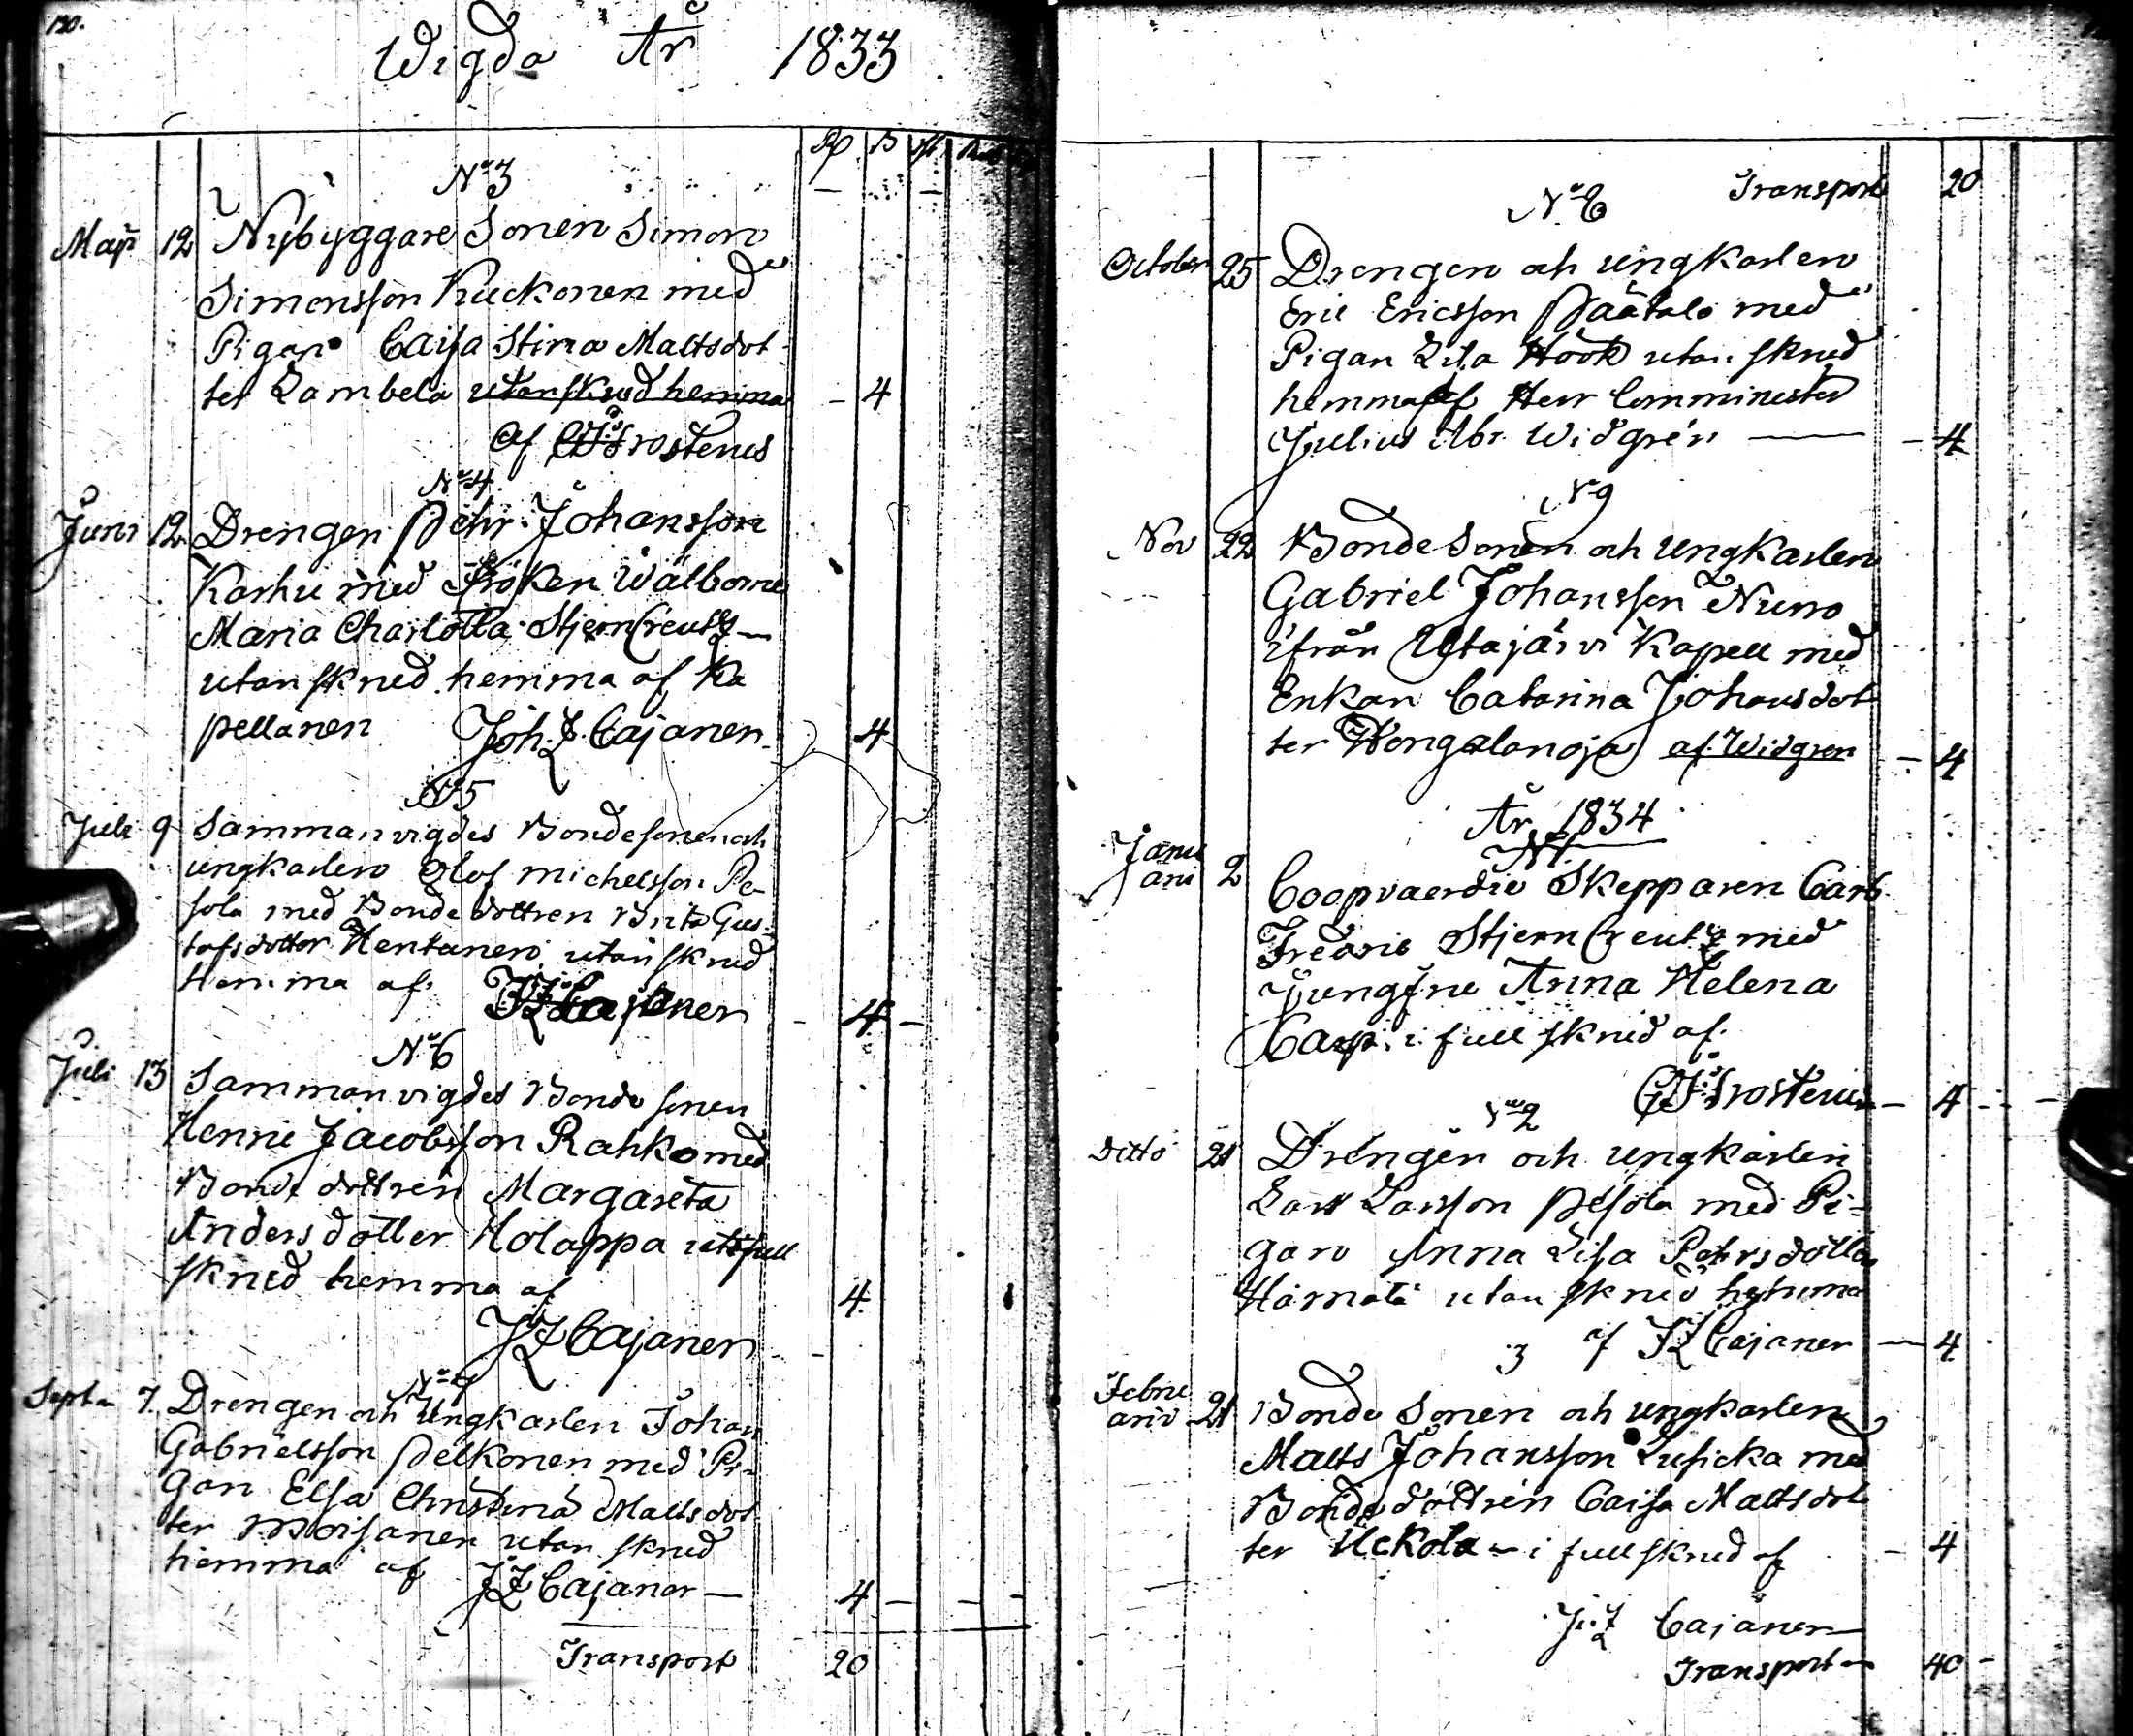 120.
Wigda År 1833
Rp B
No 3
Maji 12 Nybyggare Sonen Simon
Simonsson Kuckonen med
Pigan Caisa Stina Mattsdot
ter Lambela utan skrud hemma - 4
af Frostenus
No 4
Juni 12 Drengen Pehr Johansson
Karhu med Fröken Walborne
Maria Charlotta StjernCreutz
utan skrud hemma af Ka
pellanen Joh. F. Cajanen 4
No 5
Juli 9 Sammanvigdes Bondesonen och
ungkarlen Olof Michelsson Pe-
sola med Bonde dottren Brita Gus-
tafsdotter Hentunen utan skrud
Hemma af JF Cajanen - 4 -
No 6
Juli 13 Sammanvigdes Bonde sonen
Henric Jacobsson Rahko med
Bonde dottren Margareta
Anders dotter Holappa full
skrud hemma af 4
JF Cajanen
No 7
Sept 7. Drengen och Ungkarlen Johan
Gabrielsson Pelkonen med Pi-
gan Elsa Christina Mattsdot
ter Moisanen utan skrud
hemma af JF Cajanor 4
Transport 20
Transport 20
No 8
October 25 Drengen och ungkarlen
Eric Ericsson Päätalo med
Pigan Lisa Höök utan skrud
hemma af Herr Comminister
Julius Abr. Widgrén - 4
No 9
Nov 22 Bonde Sonen och Ungkarlen
Gabriel Johansson Nuno
ifrån Utajärvi Kapell med
Enkan Catarina Johansdot
ter Hongalanoja af Widgren - 4
År 1834
No 1
Janu
arii 2 Coopvaerdie Skepparen Carl
Fredric StjernCreutz med
Jungfru Anna Helena
Casp. i full skrud af
Frostenus - 4 -
No 2
Ditto 21 Drengen och ungkarlen
Lars Larsson Pesola med Pi-
gan Anna Lisa Pehrsdotter
Härmätä utan skrud hemma
af JF Cajaner - 4
3
Febru
arii 21 Bonde Sonen och ungkarlen
Matts Johansson Lusicka med
Bonde dottren Caisa Mattsdot
ter Uckola - i full skrud af - 4
J:F Cajanen
Transport 40 -